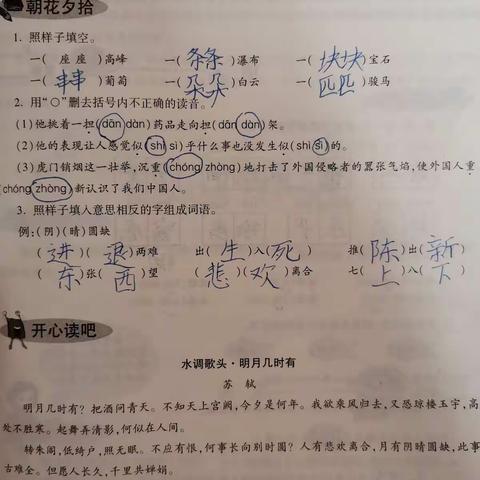 朝花夕拾
1. 照样子填空。
一( 座座 )高峰 一( 条条 )瀑布 一( 块块 )宝石
一( 串串 )葡萄 一( 朵朵 )白云 一( 匹匹 )骏马
2. 用“○”删去括号内不正确的读音。
(1)他挑着一担(dān dàn)药品走向担(dān dàn)架。
(2)他的表现让人感觉似(shì sì)乎什么事也没发生似(shì sì)的。
(3)虎门销烟这一壮举,沉重(chóng zhòng)地打击了外国侵略者的嚣张气焰,使外国人重
(chóng zhòng)新认识了我们中国人。
3. 照样子填入意思相反的字组成词语。
例:(阴)(晴)圆缺
( 进 )( 退 )两难 出( 生 )入( 死 ) 推( 陈 )出( 新 )
( 东 )张( 西 )望 ( 悲 )( 欢 )离合 七( 上 )八( 下 )
开心读吧
水调歌头·明月几时有
苏 轼
明月几时有?把酒问青天。不知天上宫阙,今夕是何年。我欲乘风归去,又恐琼楼玉宇,高
处不胜寒。起舞弄清影,何似在人间。
转朱阁,低绮户,照无眠。不应有恨,何事长向别时圆?人有悲欢离合,月有阴晴圆缺,此事
古难全。但愿人长久,千里共婵娟。